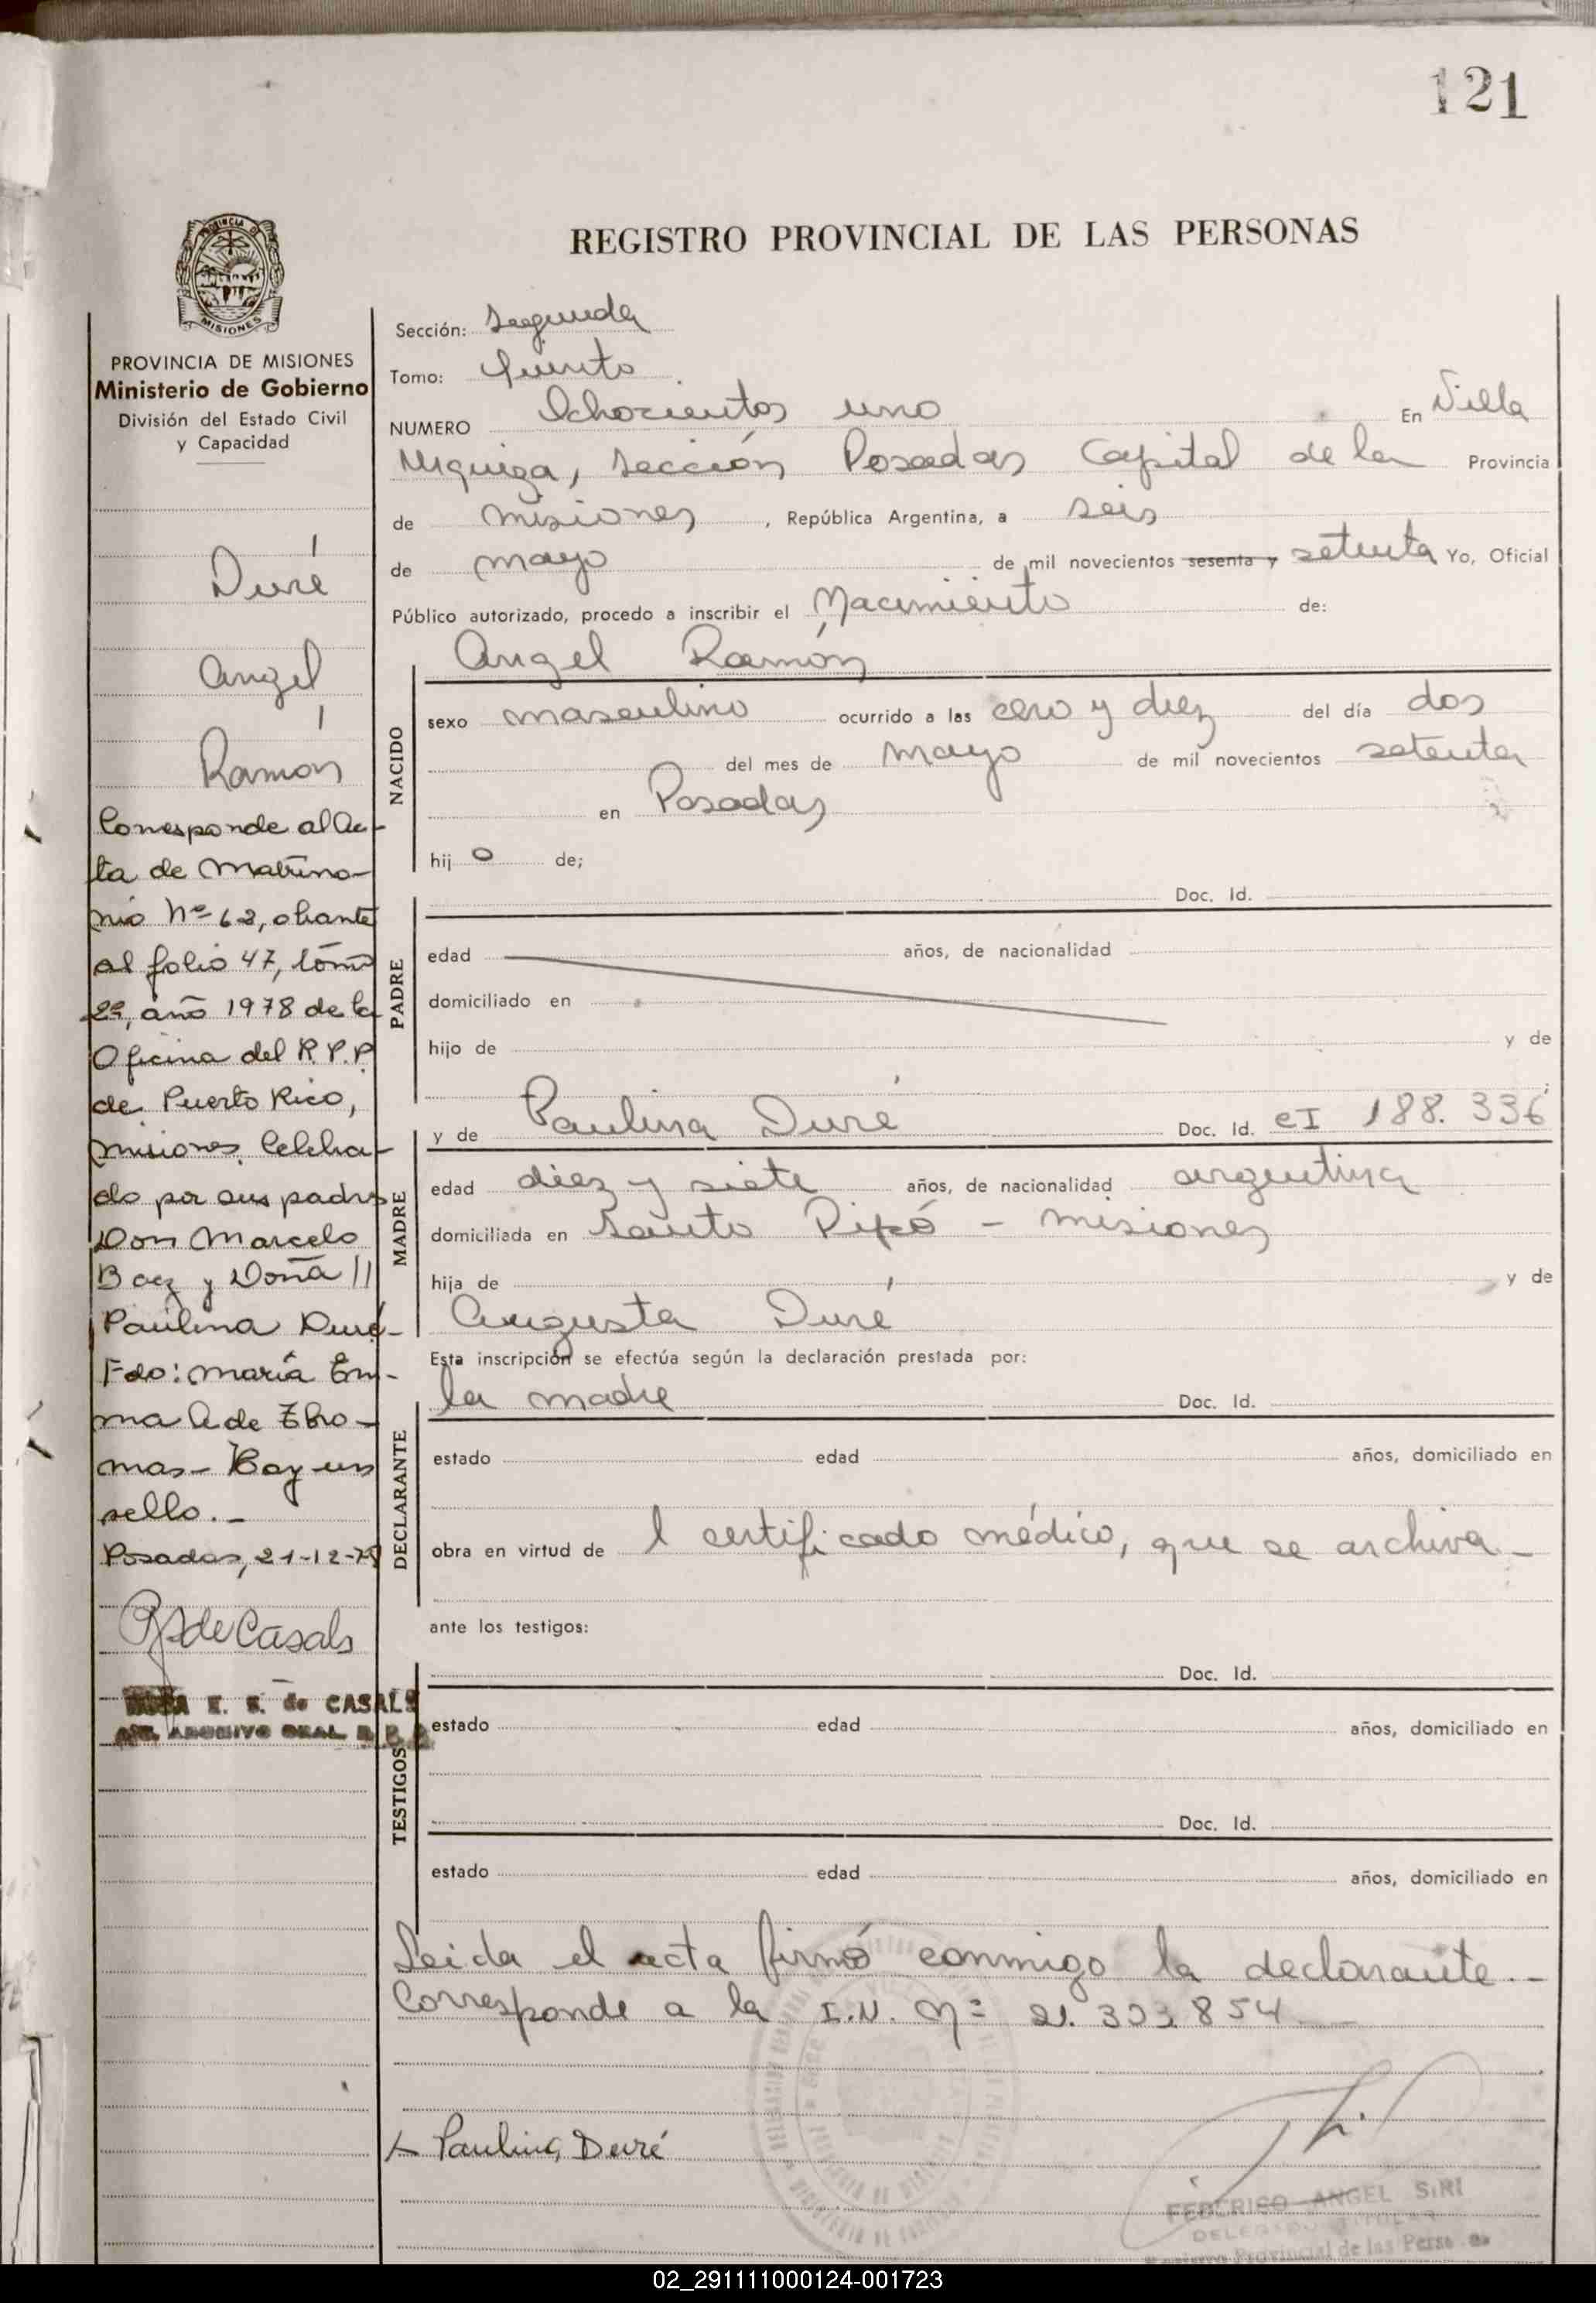 121
PROVINCIA DE
MISIONES
PROVINCIA DE MISIONES
Ministerio de Gobierno
División del Estado Civil
y Capacidad
REGISTRO PROVINCIAL DE LAS PERSONAS
Sección: Segunda
Tomo: Quinto
NUMERO Ochocientos uno En Villa
Urquiza, Sección Posadas Capital de la Provincia
de Misiones, República Argentina, a seis
de mayo de mil novecientos sesenta y setenta Yo, Oficial
Público autorizado, procedo a inscribir el Nacimiento de:
Angel Ramón
NACIDO
sexo masculino ocurrido a las cero y diez del día dos
del mes de mayo de mil novecientos setenta
en Posadas
hij o de;
PADRE
Doc. Id.
edad años, de nacionalidad
domiciliado en
hijo de y de
MADRE
y de Paulina Duré Doc. Id. CI 188.336
edad diez y siete años, de nacionalidad argentina
domiciliada en Santo Pipó - Misiones
hija de y de
Augusta Duré
Esta inscripción se efectúa según la declaración prestada por:
DECLARANTE
la madre Doc. Id.
estado edad años, domiciliado en
obra en virtud de l certificado médico, que se archiva -
ante los testigos:
TESTIGOS
Doc. Id.
estado edad años, domiciliado en
Doc. Id.
estado edad años, domiciliado en
Leida el acta firmó conmigo la declarante.-
Corresponde a la I.N. Nº 21.303.854
Paulina Duré
FEDERICO ANGEL SIRI
DELEGADO TITULAR
Registro Provincial de las Personas
Duré
Angel
Ramón
Corresponde al Ac-
ta de Matrimo-
nio Nº 62, obrante
al folio 47, tomo
2º, año 1978 de la
Oficina del R.P.P.
de Puerto Rico,
Misiones. Celebra-
do por sus padres
Don Marcelo
Baez y Doña //
Paulina Duré-
Fdo: María Em-
ma A de
mas- Hay un
sello.-
Posadas, 21-12-78
de Casals
E. S. de CASALS
ARCHIVO GRAL. R. P. P.
02_291111000124-001723